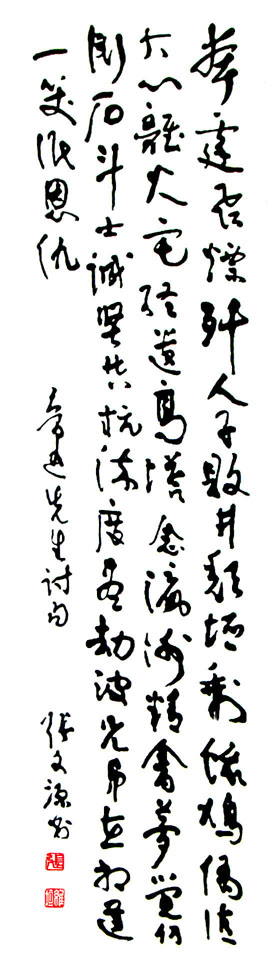 奔霆飛熛歼人子敗井頹垣剩餓鳩偶值
大心離火宅終遺高塔念瀛洲精禽夢覺仍
銜石斗士誠堅共抗流度盡劫波兄弟在相逢
一笑泯恩仇
魯迅先生詩句 張文源书